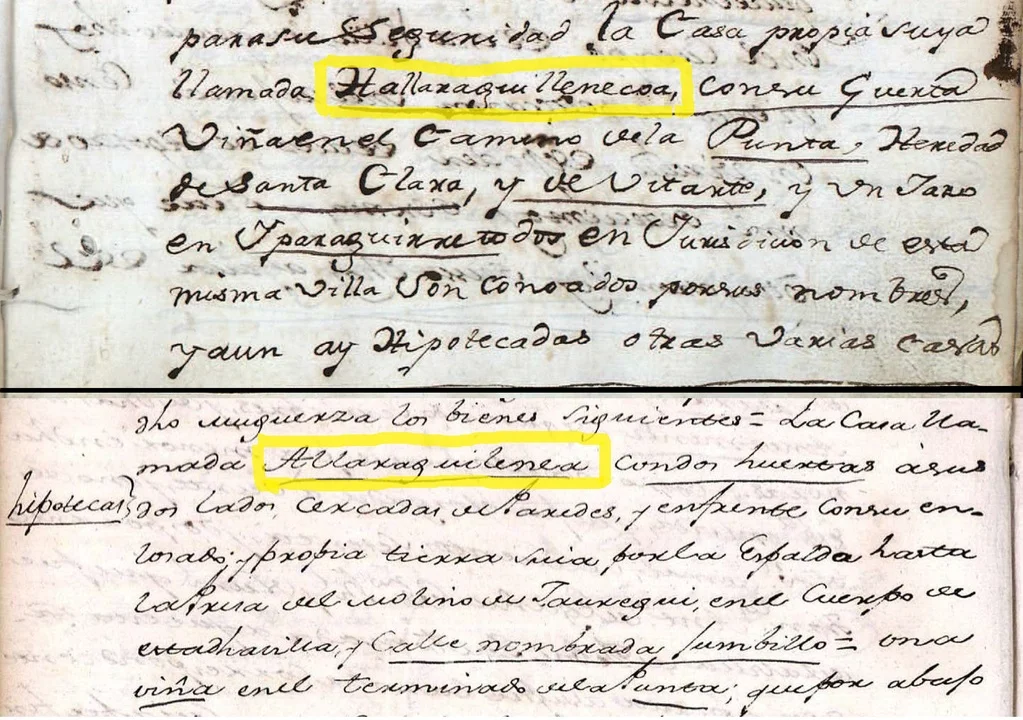 para su Seguridad la Casa propia suya
llamada Hallaraguillenecoa, con su Guerta
Viña en el Camino de la Punta, Heredad
de Santa Clara, y de Vitarte, y un Jaro
en Yparaguirre todos en Jurisdicion de esta
misma Villa son conoados por sus nombres,
y aun ay Hipotecadas otras varias casas
dho muguerza los bienes siguientes = La Casa lla-
mada Allaraguilenea con dos huertas à sus
hipotecas
dos lados cercadas de Paredes, y enfrente con su en-
losado; y propia tierra suia, por la Espalda hasta
la Presa del Molino de Jauregui, en el Cuerpo de
esta dha villa, y Calle nombrada Sumbillo = una
viña en el terminado de la Punta; que por abaso